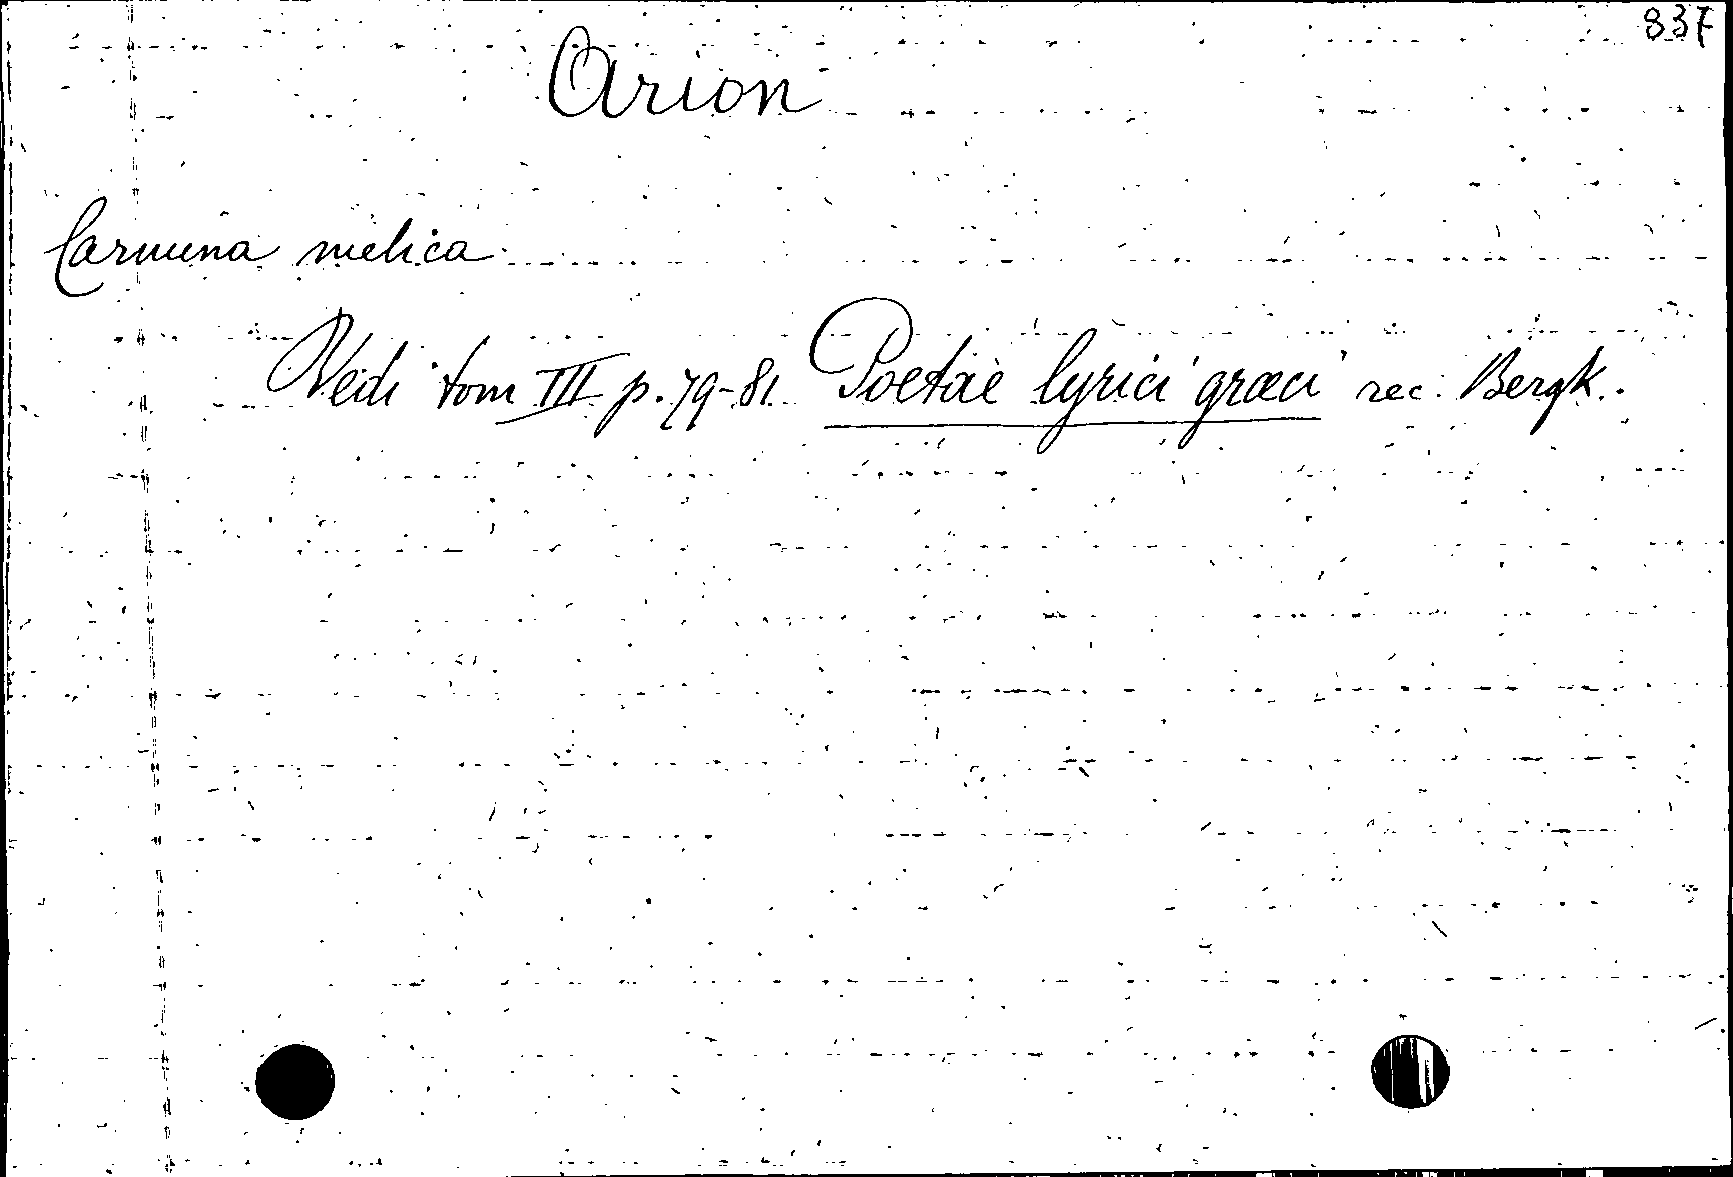 837
Arion
Carmina melica
Vedi tom III p. 79-81 Poetae lyrici græci rec. Bergk.